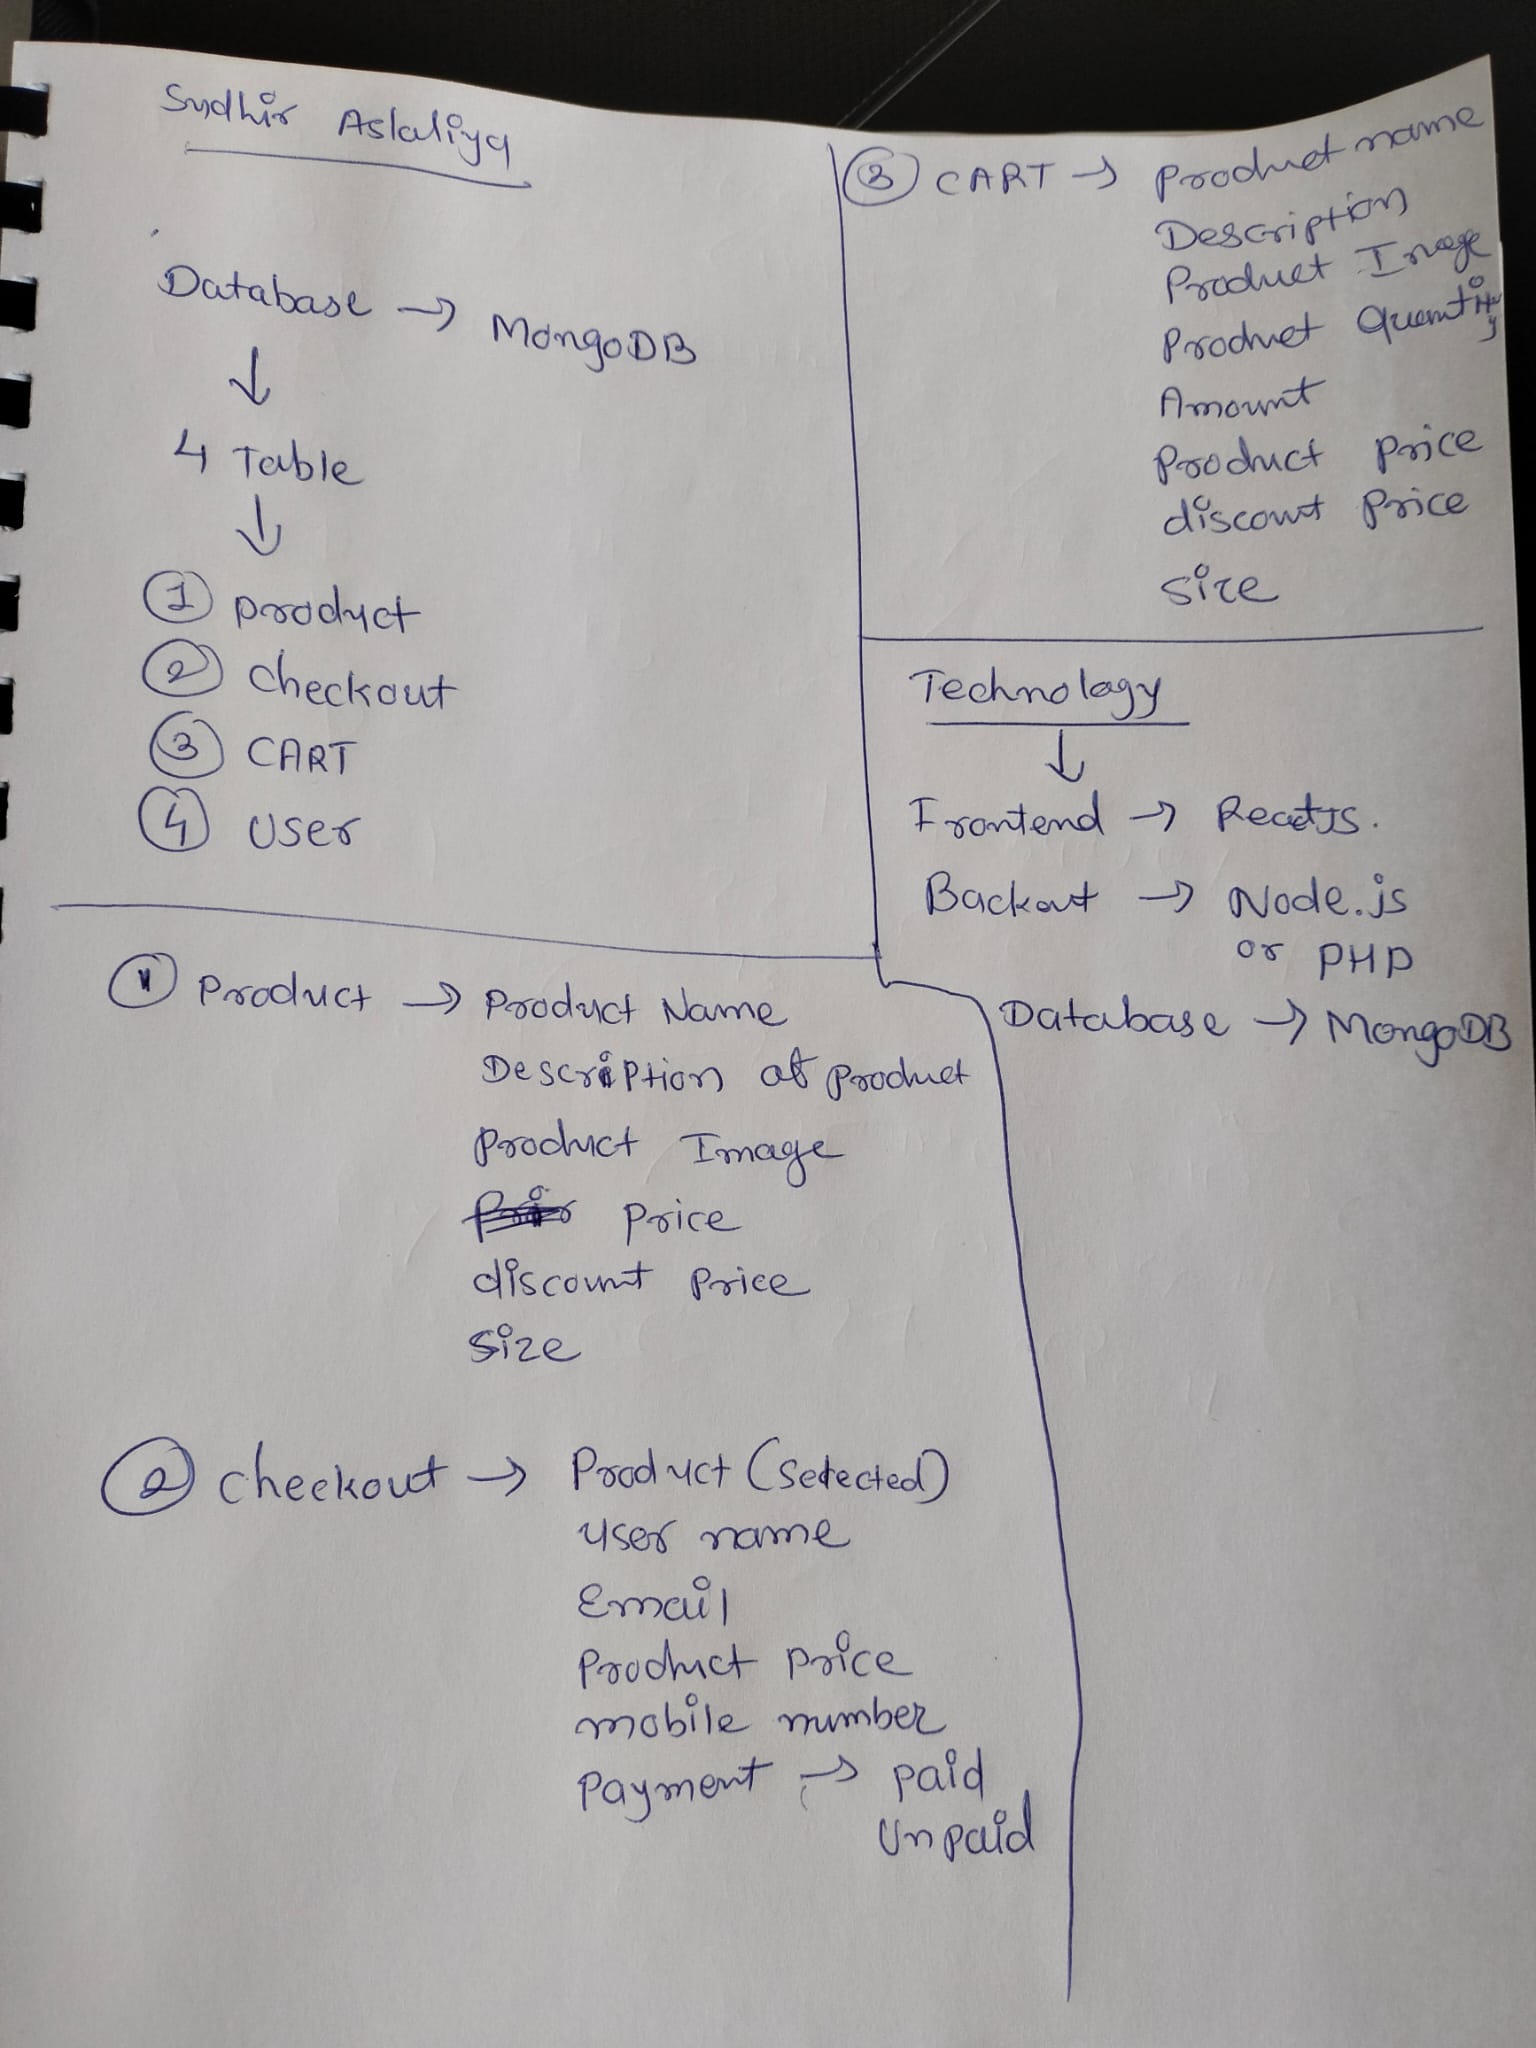 Sudhir Aslaliya
Database → MongoDB
↓
4 Table
↓
① product
② checkout
③ CART
④ User
① Product → Product Name
Description of product
Product Image
Price
discount Price
Size
② checkout → Product (Selected)
User name
Email
Product Price
mobile number
Payment → paid
Unpaid
③ CART → Product name
Description
Product Image
Product Quantity
Amount
Product Price
discount Price
Size
Technology
↓
Frontend → ReactJS.
Backout → Node.js
or PHP
Database → MongoDB